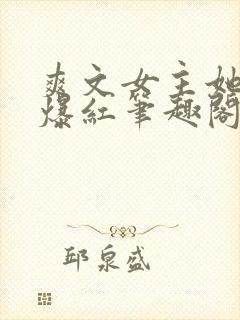 爽文女主她
爆红笔趣阁
邱泉盛